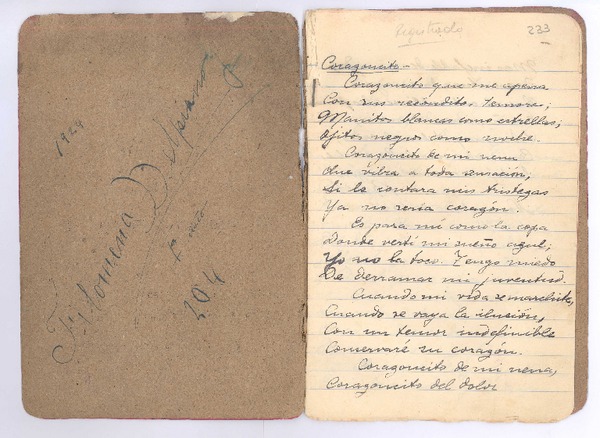 1924
Filomena Delpiano
204
Registrado
223
Corazoncito.-
Corazoncito que me apena
Con su recóndito temor;
Manitos blancas como estrellas;
Ojitos negros como noche.
Corazoncito de mi nena
Que vibra a toda sensación,
Si le contara mis tristezas
Ya no sería corazón.
Es para mí como la copa
Donde vertí mi sueño azul;
Yo no la toco. Tengo miedo
De derramar mi juventud.
Cuando mi vida se marchite,
Cuando se vaya la ilusión,
Con un temor indefinible
Conservaré su corazón.
Corazoncito de mi nena,
Corazoncito del dolor